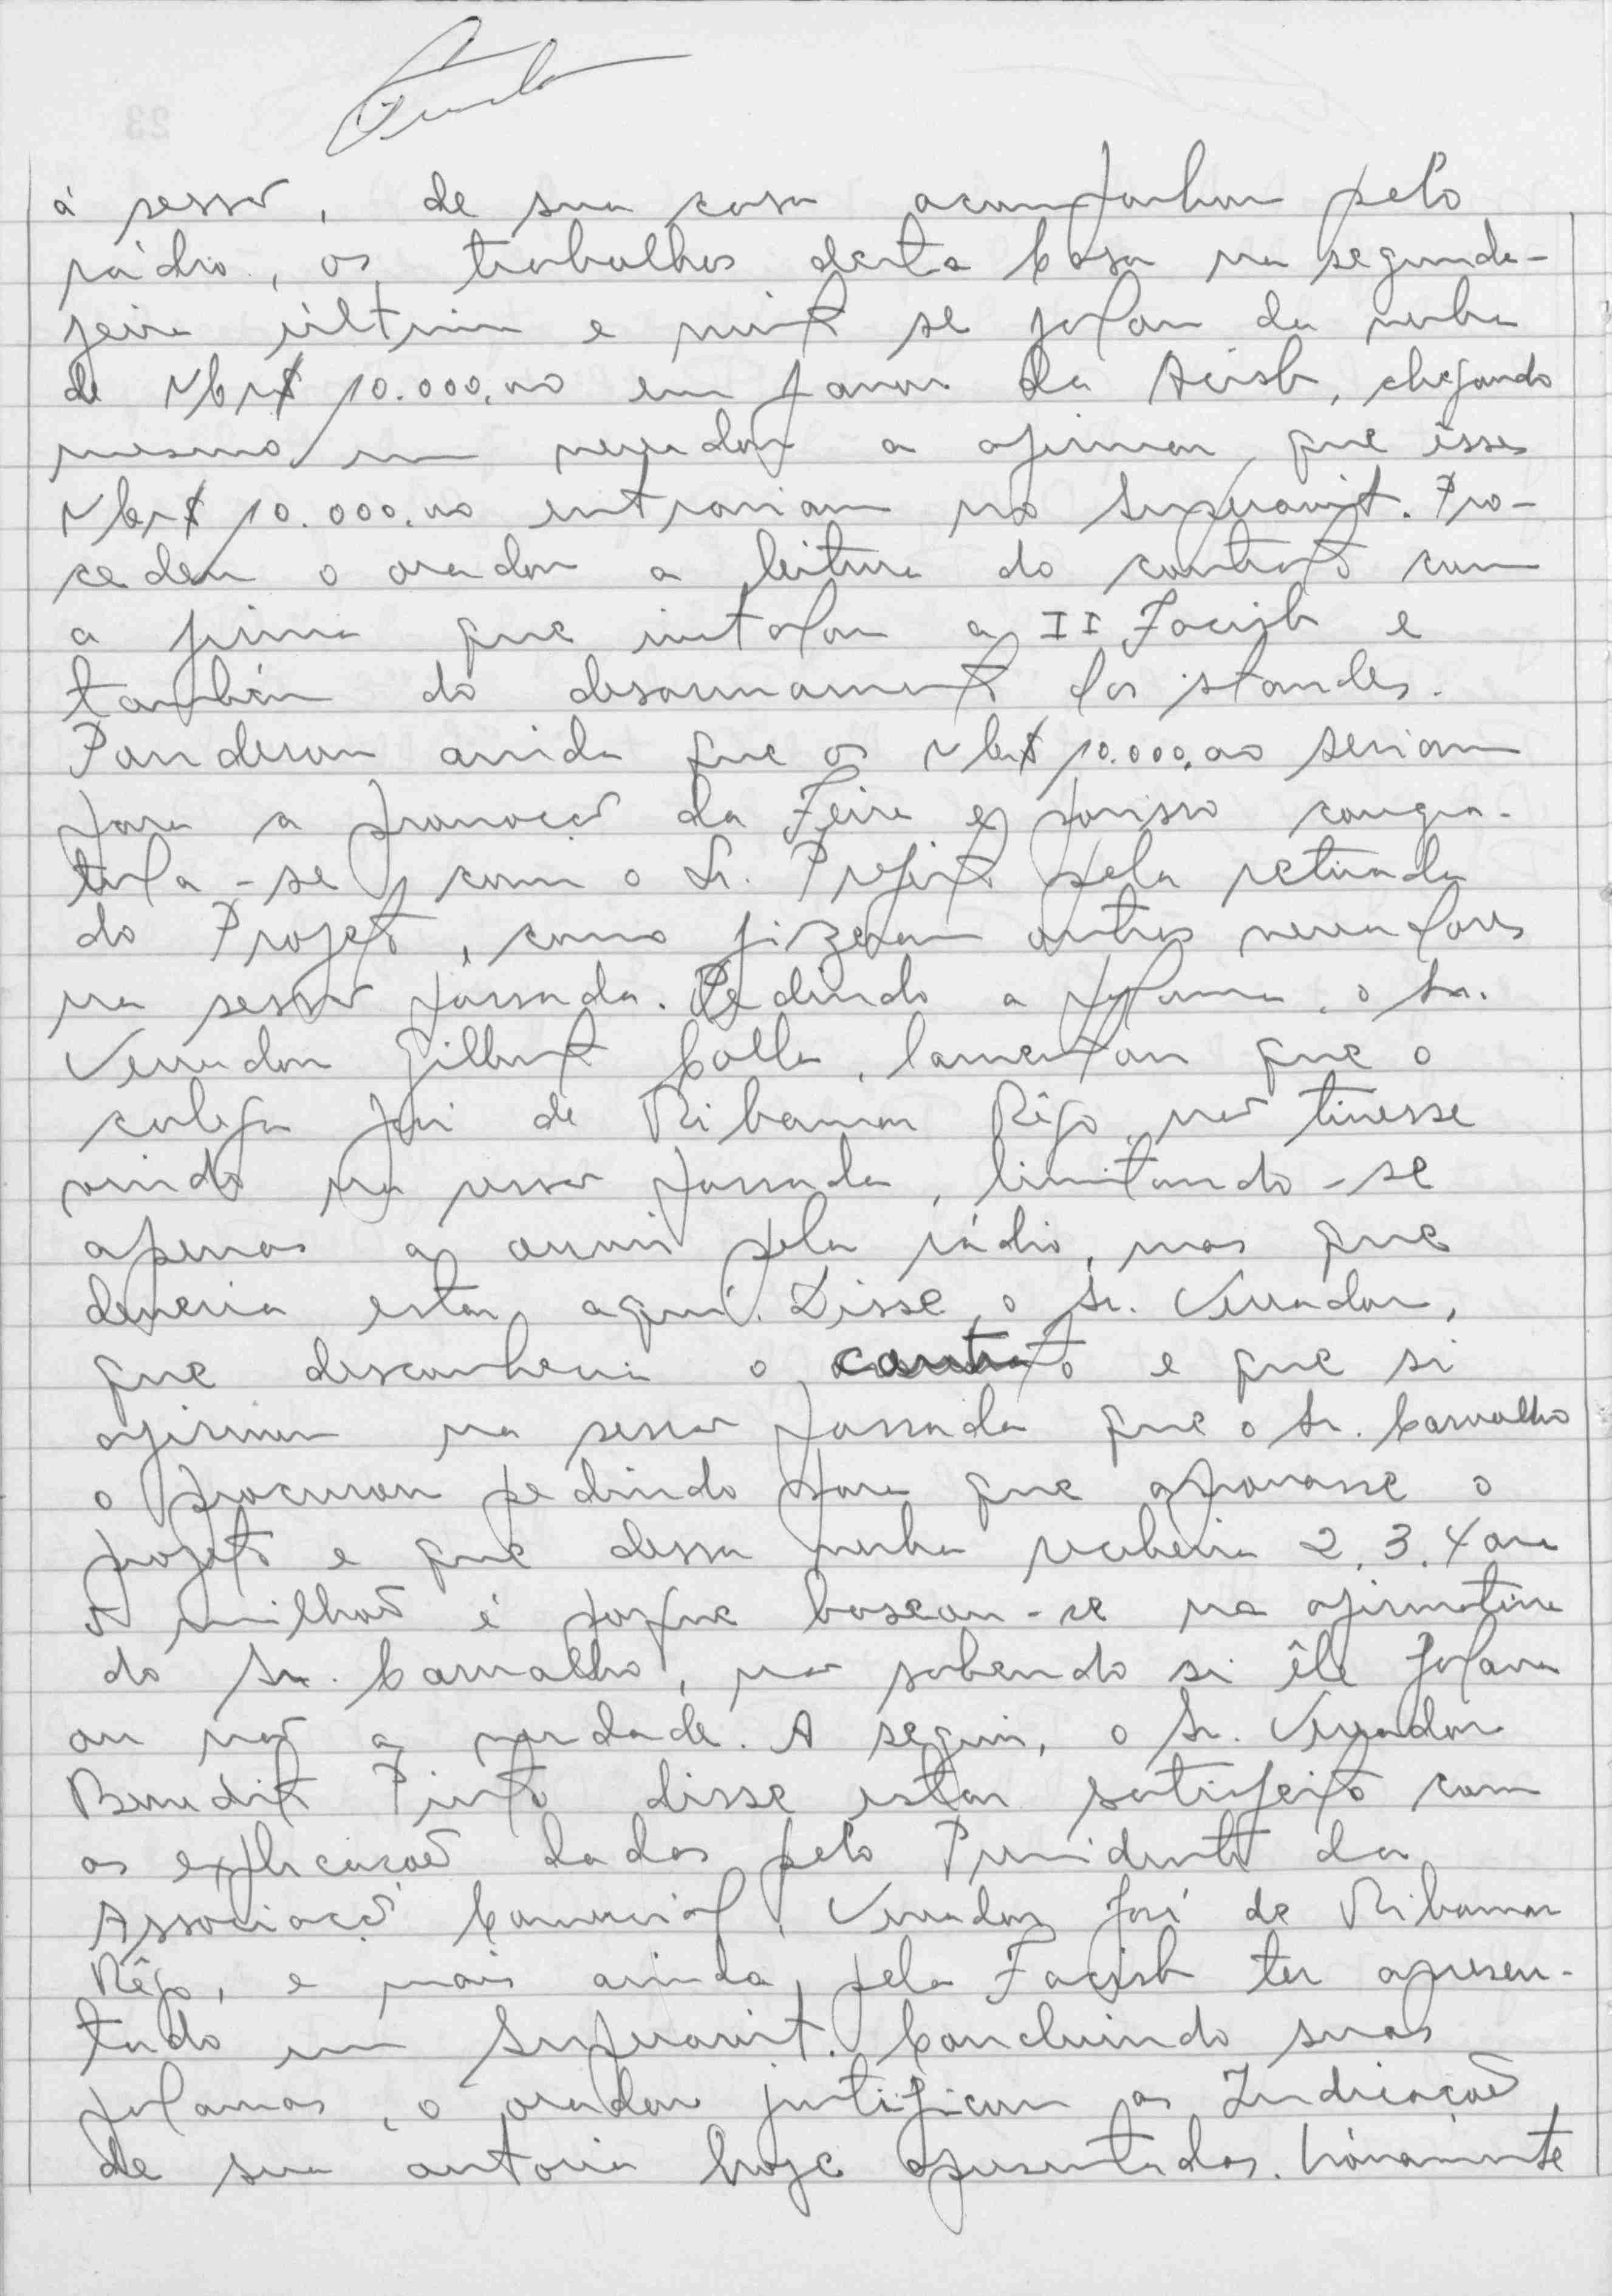 à sessão, de sua casa acompanhou pelo
rádio, os trabalhos desta Casa na segunda-
feira última e muito se falou da verba
de NCr$ 10.000,00 em favor da Acisb, chegando
mesmo um vereador a afirmar que êsses
NCr$ 10.000,00 entrariam no Superavit. Pro-
cedeu o orador a leitura do contrato com
a firma que instalou a II Facisb e
também do desarmamento dos standes.
Ponderou ainda que os NCr$ 10.000,00 seriam
para a promoção da Feira e porisso congra-
tula-se com o Sr. Prefeito pela retirada
do Projeto, como fizeram outros vereadores
na sessão passada. Pedindo a palavra, o Sr.
Vereador Gilberto Colla, lamentou que o
colega José de Ribamar Rêgo não tivesse
vindo na sessão passada, limitando-se
apenas a ouvir pela rádio, mas que
deveria estar aqui. Disse o Sr. Vereador,
que desconhecia o contrato e que si
afirmou na sessão passada que o Sr. Carvalho
o procurou pedindo para que aprovasse o
projeto e que dessa verba receberia 2, 3, 4 ou
5 milhões é porque baseou-se na afirmativa
do Sr. Carvalho, não sabendo si êle falava
ou não a verdade. A seguir, o Sr. Vereador
Benedito Pinto disse estar satisfeito com
as explicações dadas pelo Presidente da
Associação Comercial, Vereador José de Ribamar
Rêgo, e mais ainda, pela Facisb ter apresen-
tado um Superavit. Concluindo suas
palavras, o orador justificou as Indicações
de sua autoria hoje apresentadas. Novamente